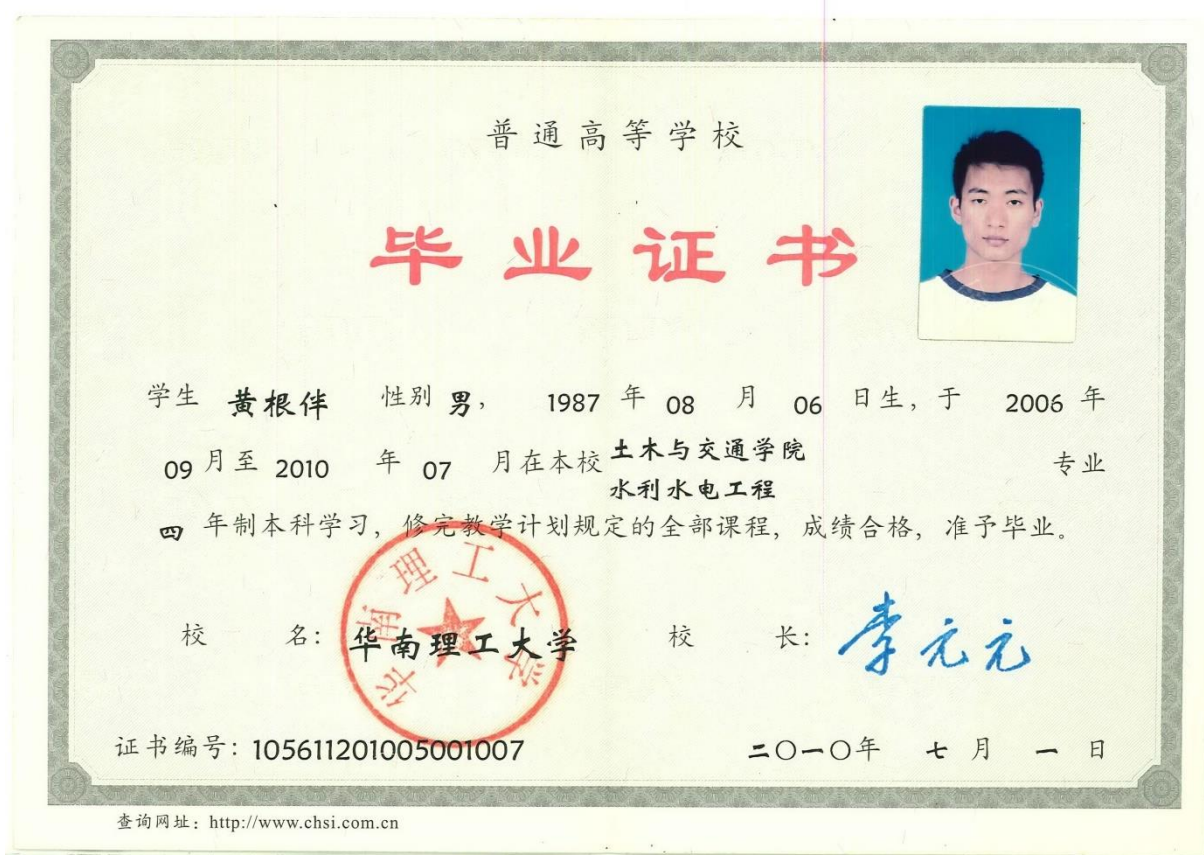 普通高等学校
毕业证书
学生 黄根伴 性别 男， 1987 年 08 月 06 日生，于 2006 年
09 月至 2010 年 07 月在本校 土木与交通学院
水利水电工程 专业
四 年制本科学习，修完教学计划规定的全部课程，成绩合格，准予毕业。
华南理工大学
校 名：华南理工大学 校 长：李元元
证书编号：105611201005001007 二〇一〇年 七 月 一 日
查询网址：http://www.chsi.com.cn